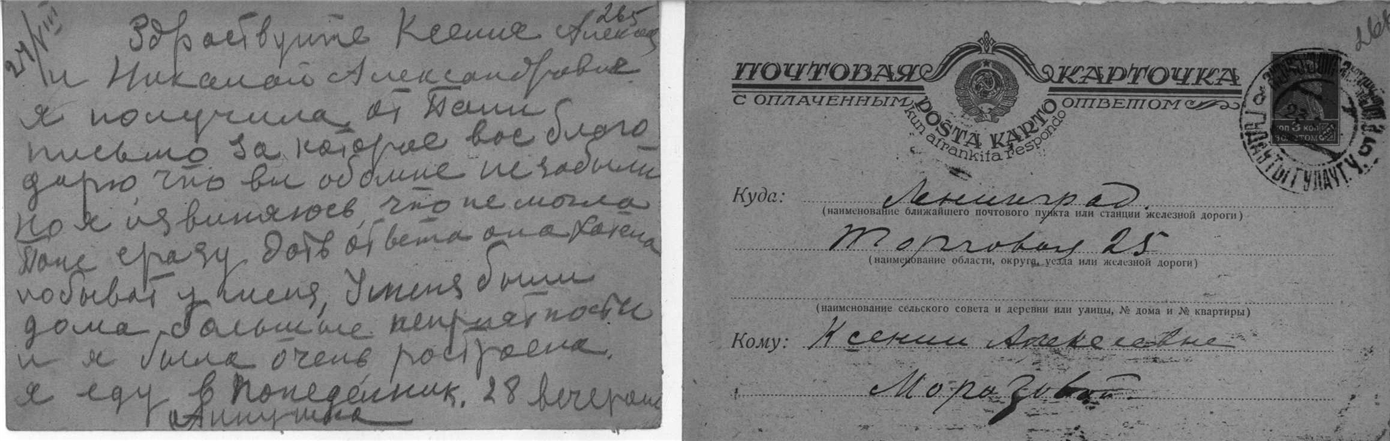 265
Здраствуйте Ксение Алексе
24/VIII
и Николай Александрович
я получила от Тани
письмо за которое вас благо
дарю что вы обомне незабыли
но я извиняюсь, что не могла
Тане сразу дать ответа она хотела
побыват у меня, У меня были
дома большые неприятности
и я была очень ростроена.
я еду в понеделник. 28 вечером
Аннушка
ПОЧТОВАЯ КАРТОЧКА
С ОПЛАЧЕННЫМ ОТВЕТОМ
POŜTA KARTO
kun afrankita respondo
Куда: Ленинград.
(наименование ближайшего почтового пункта или станции железной дороги)
Торговая 25
(наименование области, округа, уезда или железной дороги)
(наименование сельского совета и деревни или улицы, № дома и № квартиры)
Кому: Ксении Алексеевне
Морозовой